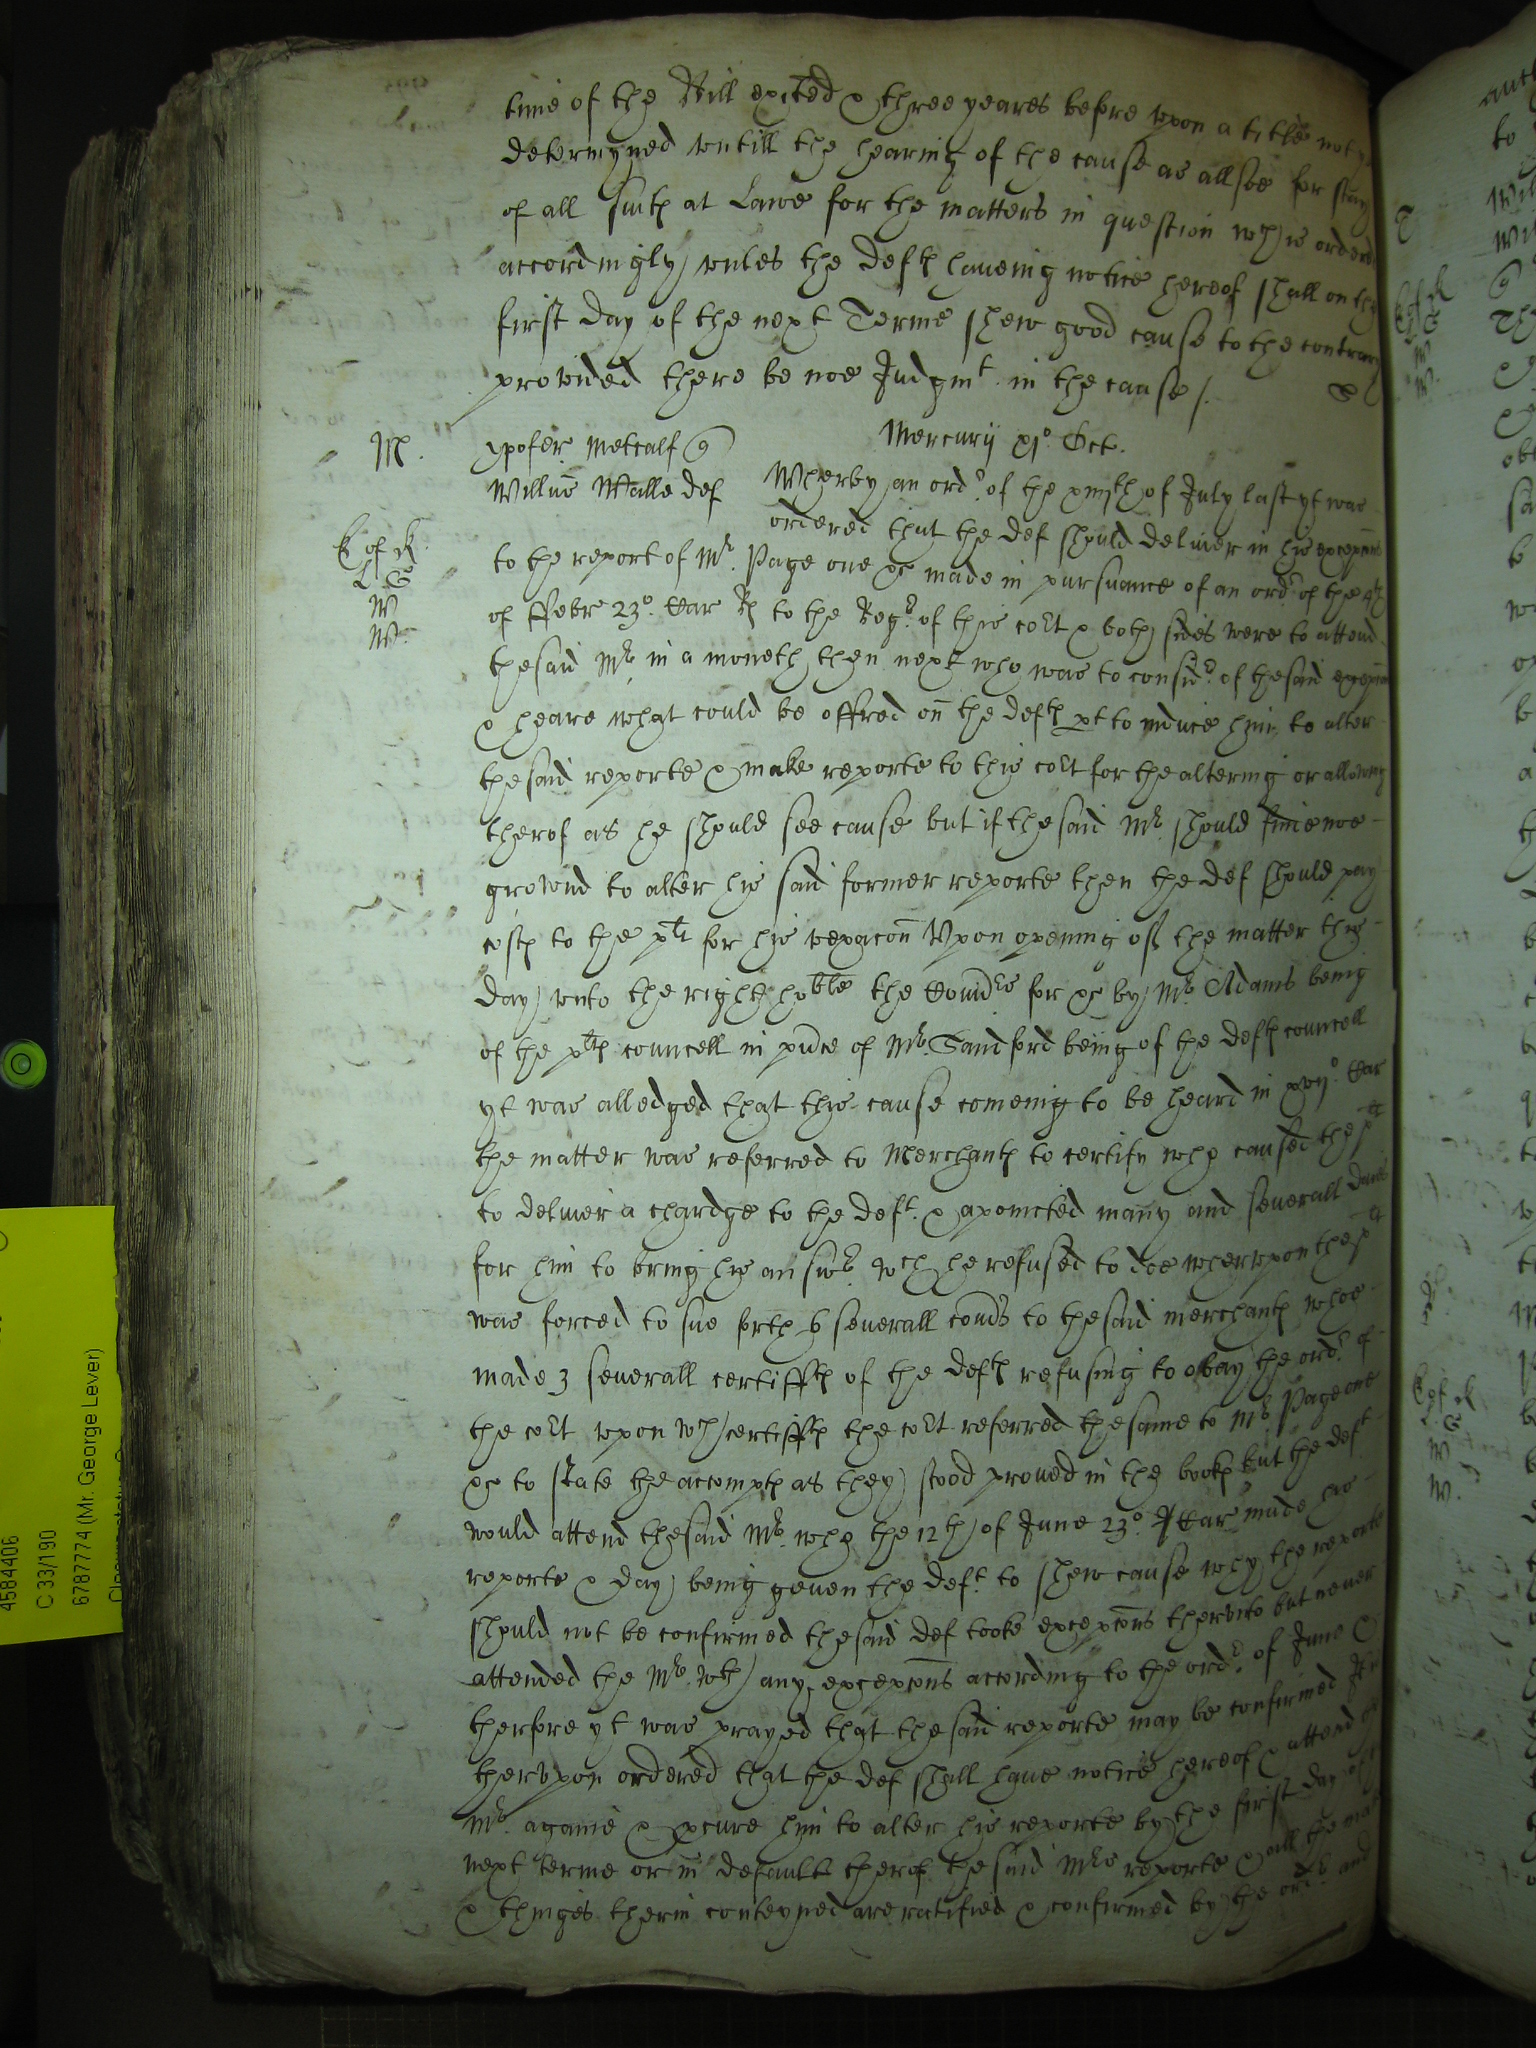 time of the Bill exited & three yeares before vpon a title not
determyned vntill the hearing of the cause as allsoe for stay
of all suite at Lawe for the matters in question wch is ordered
accordingly vnles the deft haueing notice hereof shall on the
first day of the next Terme shew good cause to the contrary
provided there be noe Judgmt in the cause /.
M. xpofer Metcalf
Mercurij xjo Oct.
Willms Halle def Wherby an ordr of the xiijth of July last yt was
ordered that the def should deliuer in his excepcons
L G
W
W
to the report of Mr. Page one &c made in pursuance of an ordr of the
of ffebr 23o. Car Rs to the Regr of this cort & both sides were to attend
thesaid Mr in a moneth then next who was to considr of thesaid excepcons
& heare what could be offred on the defts pt to induce him to alter
thesaid reporte & make reporte to this cort for the altering or allowing
therof as he should see cause but if thesaid Mr should finde noe
grownd to alter his said former reporte then the def should pay
costs to the plt for his vexacon Vpon opening of the matter this
day vnto the right hoble the Comdrs for &c by Mr Adams being
of the plts councell in pnce of Mr Sandford being of the defts councell
yt was alledged that this cause comeing to be heard in xvijo. Car
the matter was referred to Merchants to certify who caused the plt
to deliuer a chardge to the deft. & apointed many and seuerall daies
for him to bring his answr. wch he refused to doe whervpon the plt
was forced to sue forth 6 seuerall comds to thesaid merchants whoe
made 3 seuerall certiffts of the defts refusing to obay the ordr. of
the cort vpon wch certiffts the cort referred thesame to Mr Page one
&c to state the accompts as they stood proued in the books but the deft
would attend thesaid Mr. who the 12th of June 23o. Car made his
reporte & day being geuen the deft. to shew cause why the reporte
should not be confirmed thesaid def tooke excepcons thervnto but never
attended the Mr. wth any excepcons according to the ordr. of June
therfore yt was prayed that the said reporte may be confirmed It is
thervpon ordered that the def shall haue notice hereof & attend the
Mr. againe & pcure him to alter his reporte by the first day of
next terme or in default therof the said Mrs reporte & all the
& things therin conteyned are ratified & confirmed by the ordr and
4584406
C 33/190
6787774 (Mr. George Lever)